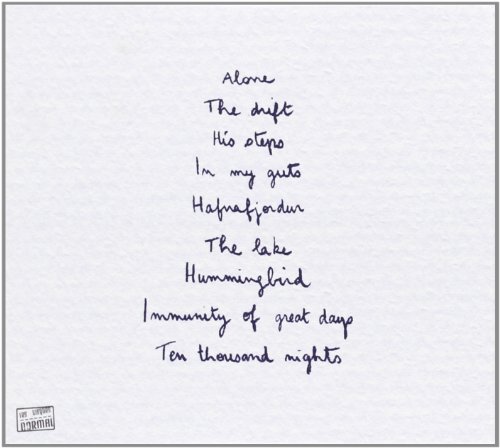 Alone
The drift
His steps
In my guts
Hafnafjordur
The lake
Hummingbird
Immunity of great days
Ten thousand nights
NORMAL